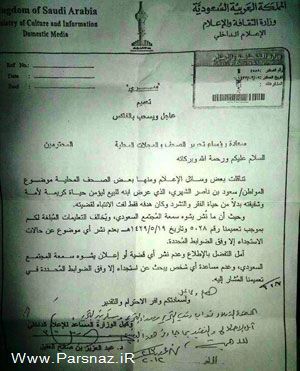 Kingdom of Saudi Arabia
Ministry of Culture and Information
Domestic Media
المملكة العربية السعودية
وزارة الثقافة والإعلام
الإعلام الداخلي
Ref No.:
Date :
"سري"
تعميم
عاجل ويسحب بالفاكس
سعادة رؤساء تحرير الصحف والمجلات المحلية المحترمين
السلام عليكم ورحمة الله وبركاته
تناقلت بعض وسائل الإعلام ومنها بعض الصحف المحلية موضوع
المواطن/ سعود بن ناصر الشهري، الذي عرض ابنه للبيع ليؤمن حياة كريمة لأمه
وشقيقته بدلاً من حياة الفقر والتشرد وكان هدفه فقط لفت الانتباه لقضيته.
وحيث أن ما نُشر يشوه سمعة المجتمع السعودي، ويُخالف التعليمات المُبلغة لكم
بموجب تعميمنا رقم ٥٠٢٨ وتاريخ ١٤٢٩/٥/١٩هـ بعدم نشر أي موضوع عن حالات
الاستجداء إلا وفق الضوابط المحددة.
آمل التفضل بالإطلاع وعدم نشر أي قضية أو إعلان يشوه سمعة المجتمع
السعودي، وعدم مساعدة أي شخص يبحث عن استجداء إلا وفق الضوابط المحددة في
تعميمنا المُشار إليه.
ولسعادتكم وافر الاحترام والتقدير
وكيل الوزارة المساعد للإعلام الداخلي
د. عبد العزيز بن صالح العقيل
www.Parsnaz.iR